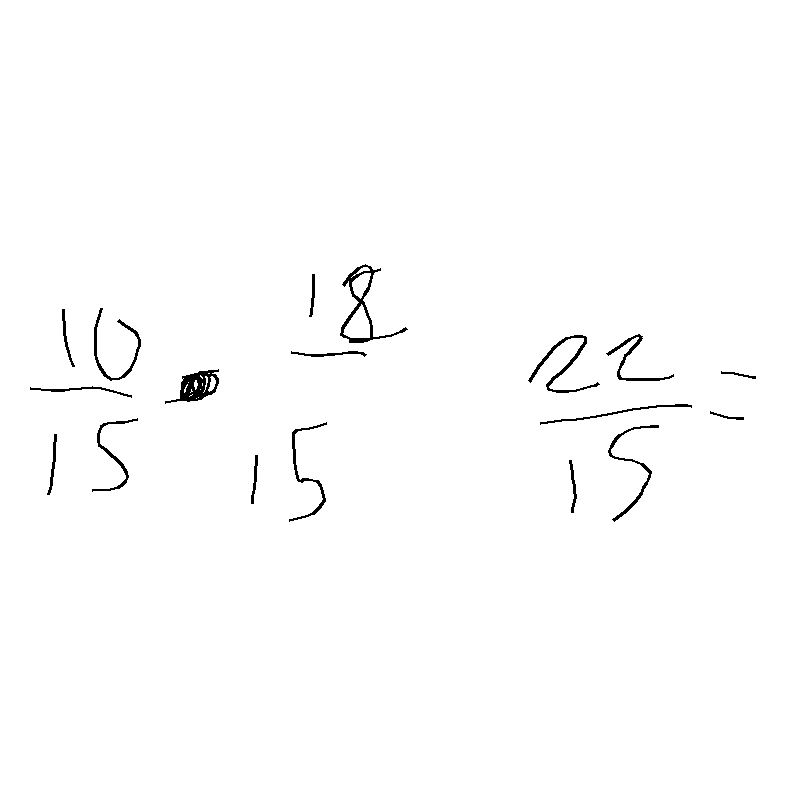 10/15 - 18/15 22/15 =